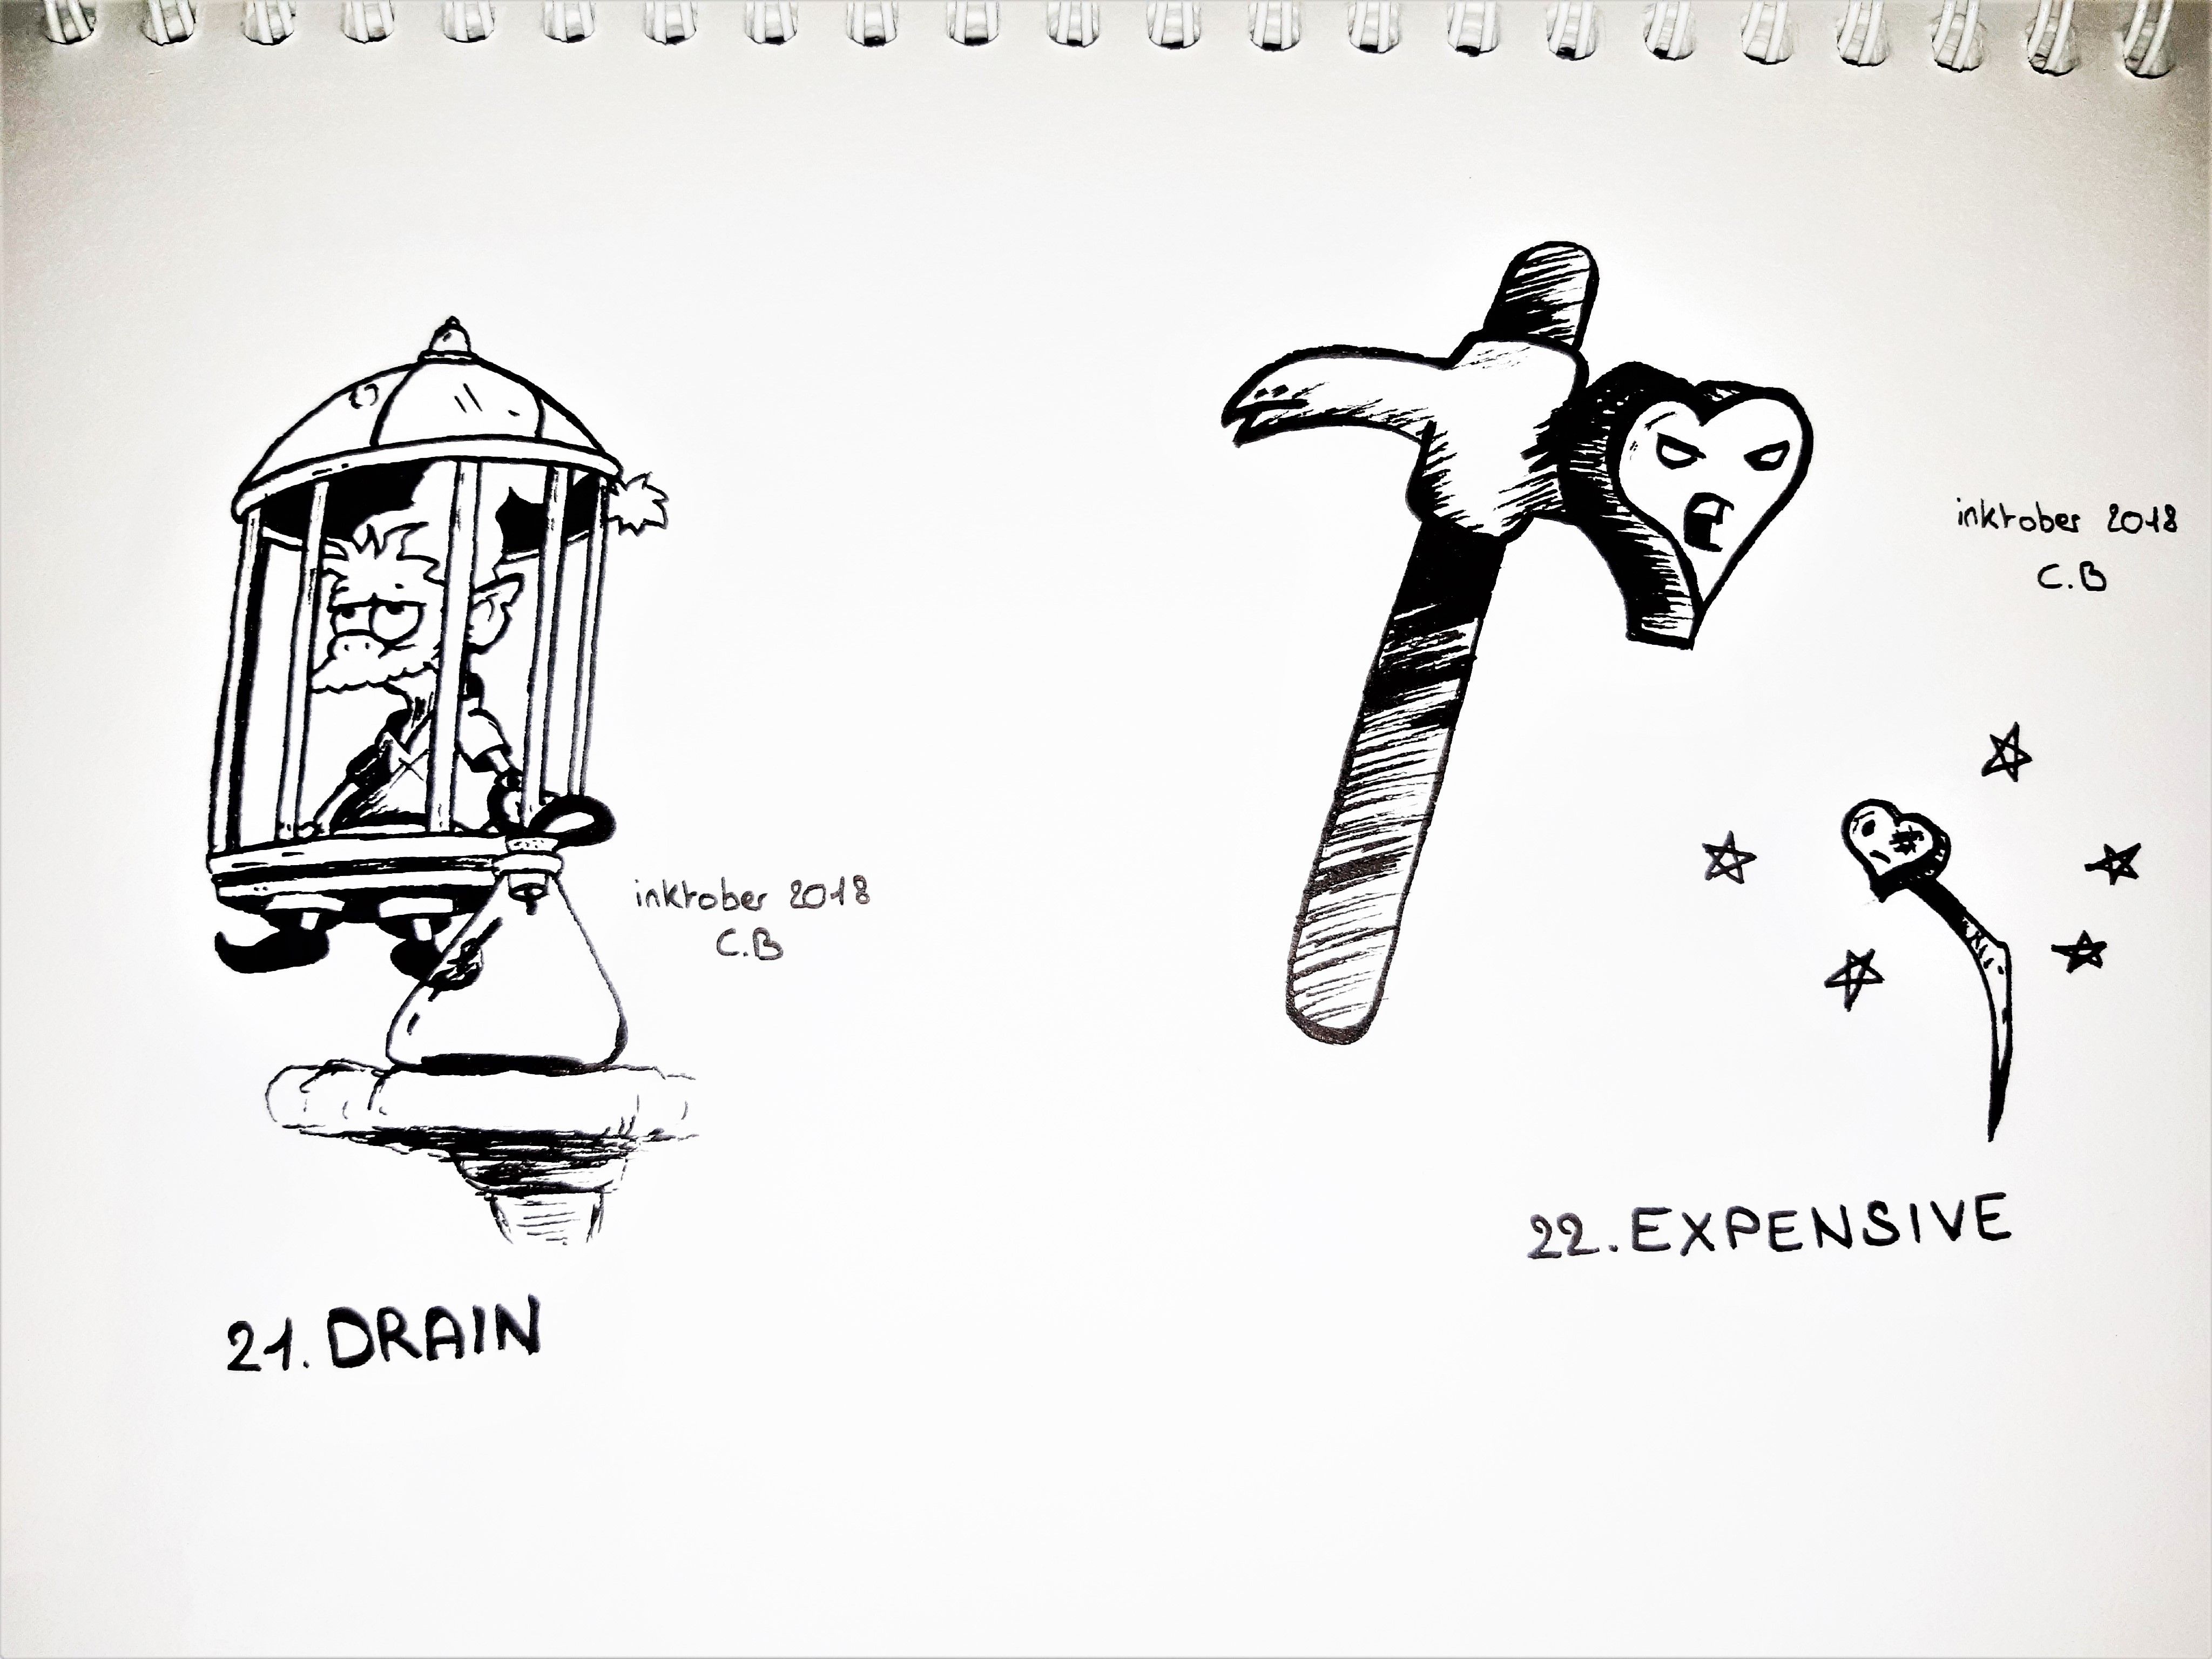 inktober 2018
C.B
21. DRAIN
inktober 2018
C.B
22. EXPENSIVE